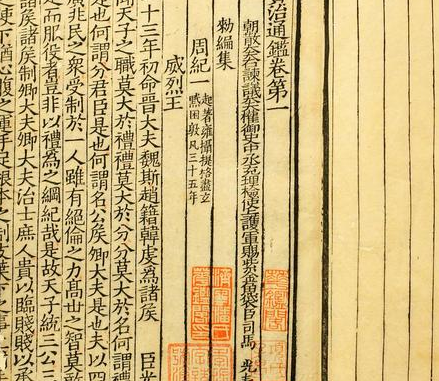 治通鑑卷第一
朝散大夫右諫議大夫權御史中丞充理檢使上護軍賜紫金魚袋臣司馬 光奉
勑編集
周紀一 起著雍攝提格盡玄
黓困敦凡三十五年
威烈王
十三年初命晉大夫魏斯趙籍韓虔爲諸矦 臣光
聞天子之職莫大於禮禮莫大於分分莫大於名何謂禮
是也何謂分君臣是也何謂名公矦卿大夫是也夫以四
兆民之衆受制於一人雖有絕倫之力高世之智莫敢
之而服役者豈非以禮爲之綱紀哉是故天子統三公三
諸矦諸矦制卿大夫卿大夫治士庶人貴以臨賤賤以承
之使下猶心腹之運手足根本之制支葉下之事